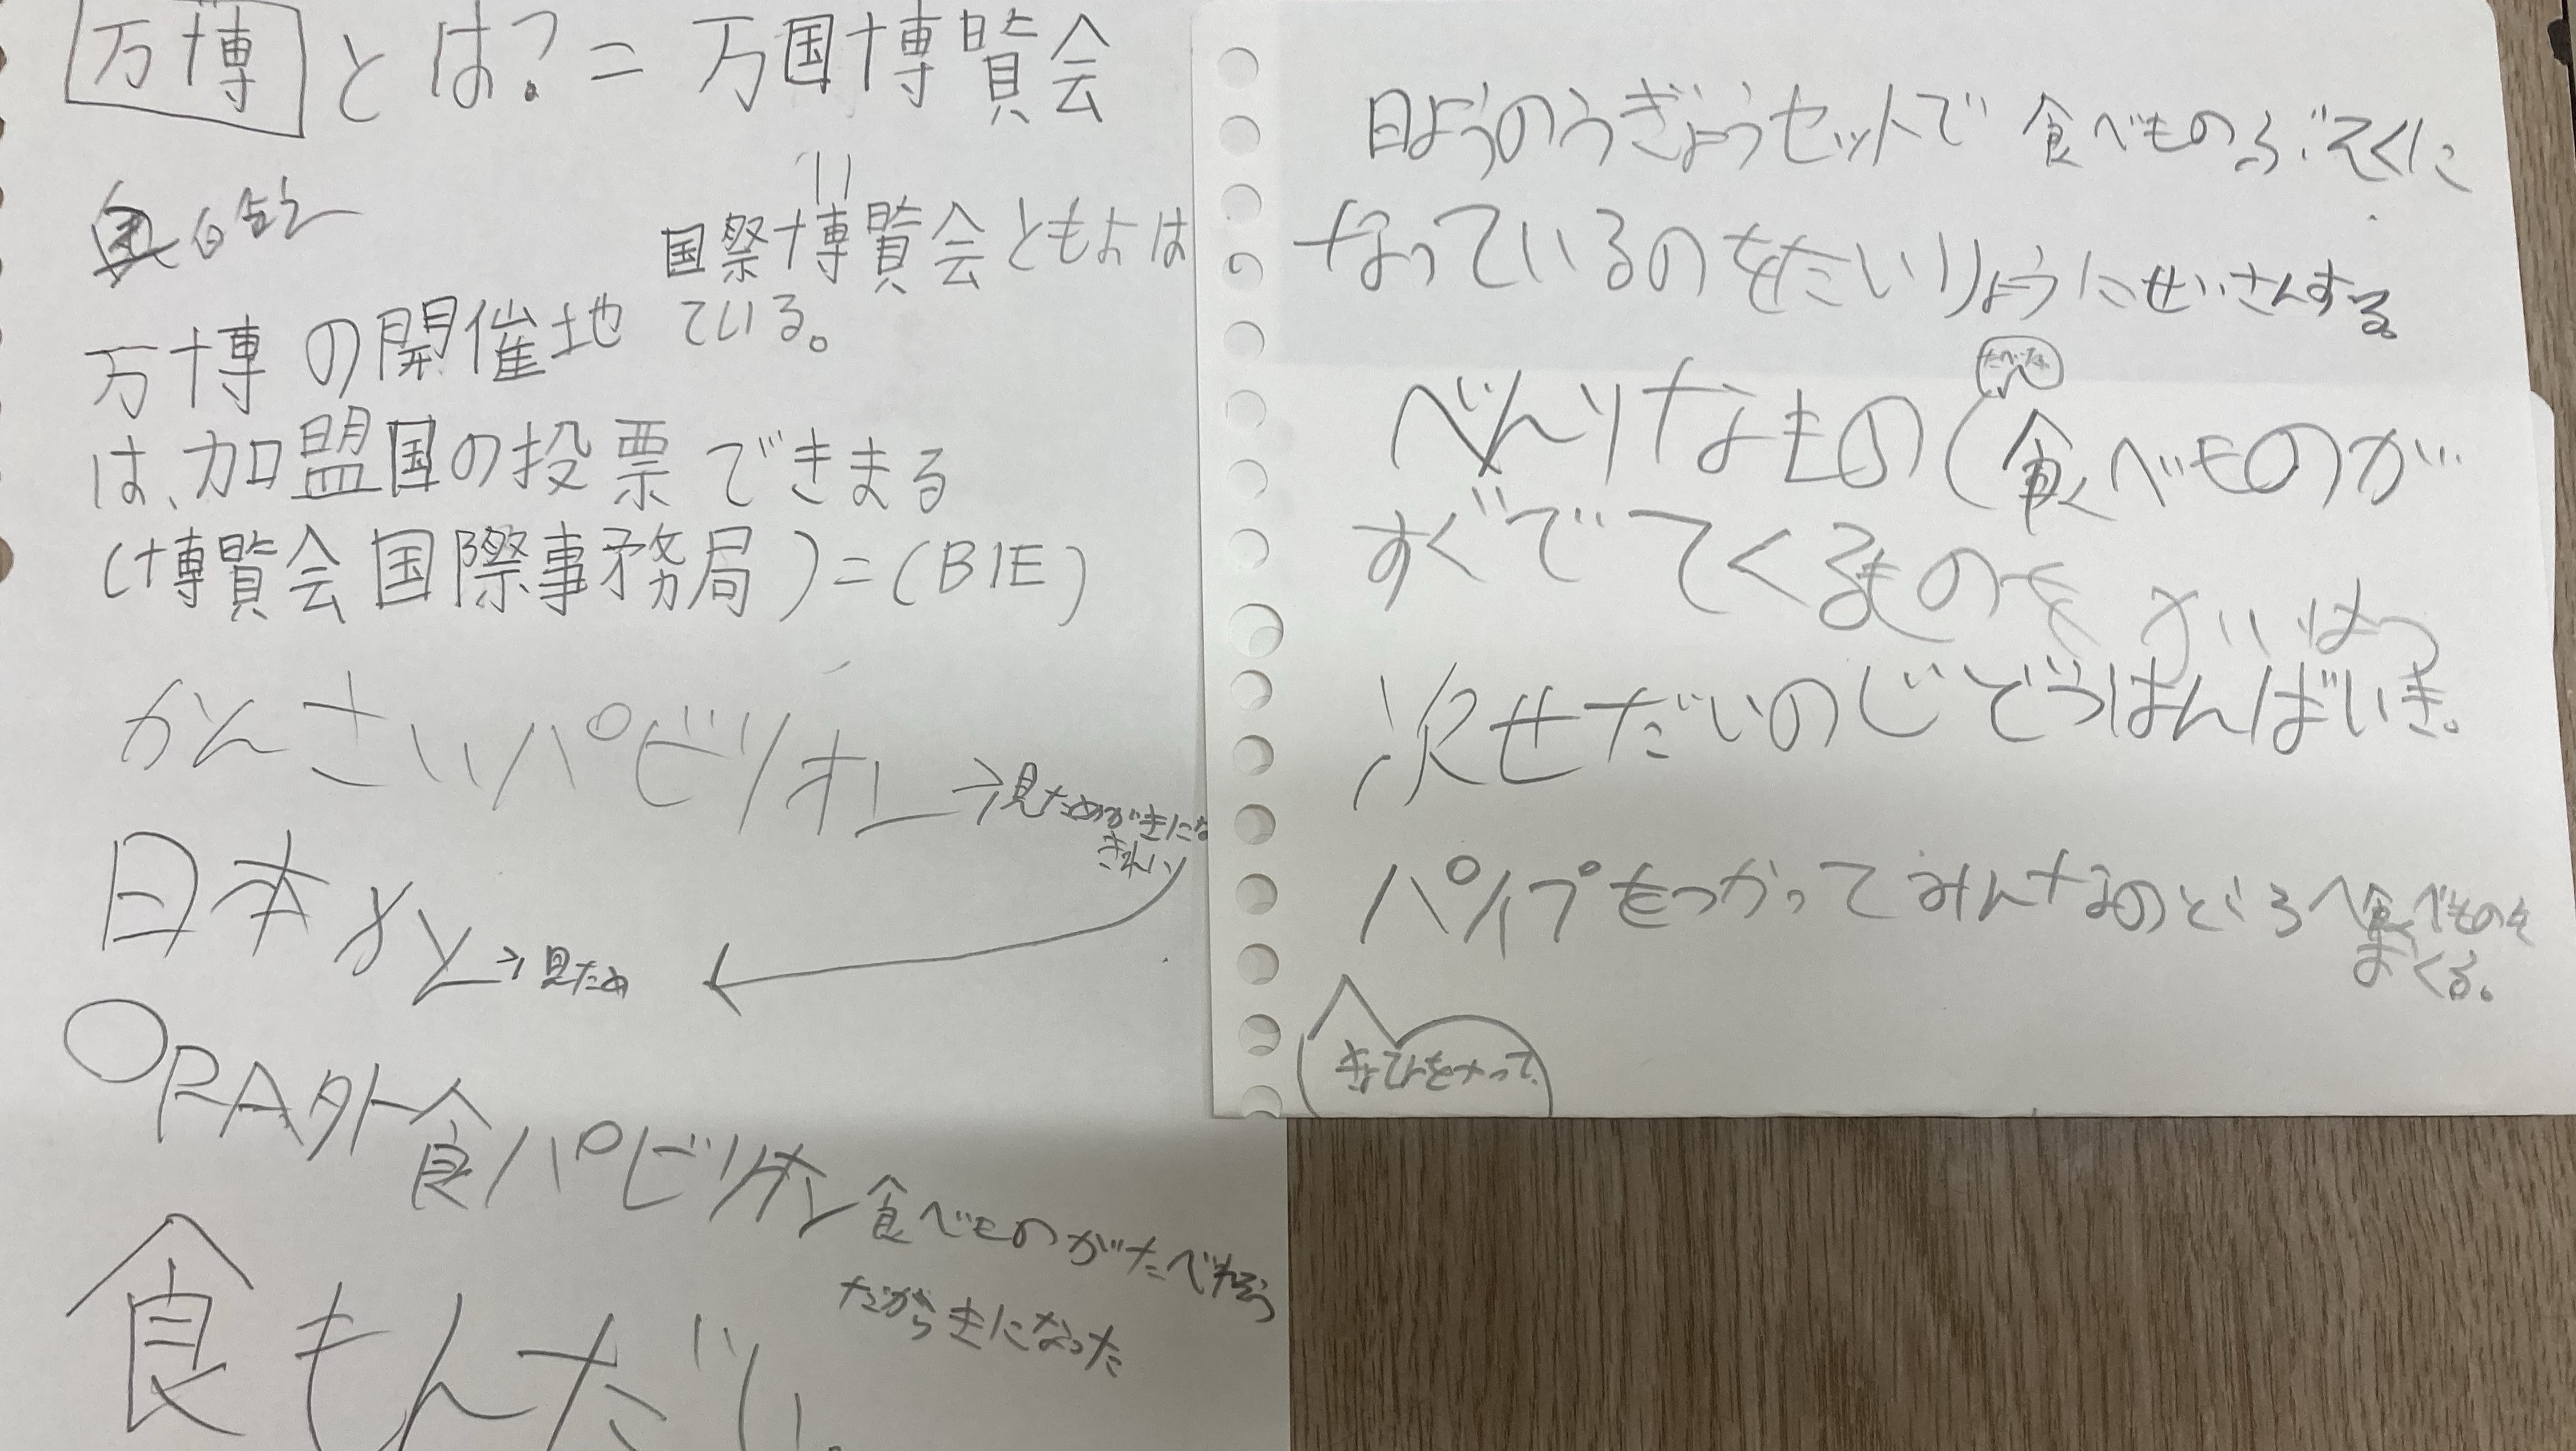 万博とは?=万国博覧会
=
国祭博覧会ともよは
ている。
万博の開催地
は、加盟国の投票できまる
(博覧会国際事務局)=(BIE)
かんさいパビリオン→見ためがきにな
きれい
日本かん→見ため
ORA外食パビリオン 食べものがたべれそう
だからきになった
食もんだい
日ようのうぎょうセットで 食べものぶそくに
なっているのをたいりょうにせいさんする
べんりなもの(食べものが
すぐでてくるものをかいはつ
次せだいのじどうはんばいき。
パイプをつかってみんなのところへ食べものを
おくる。